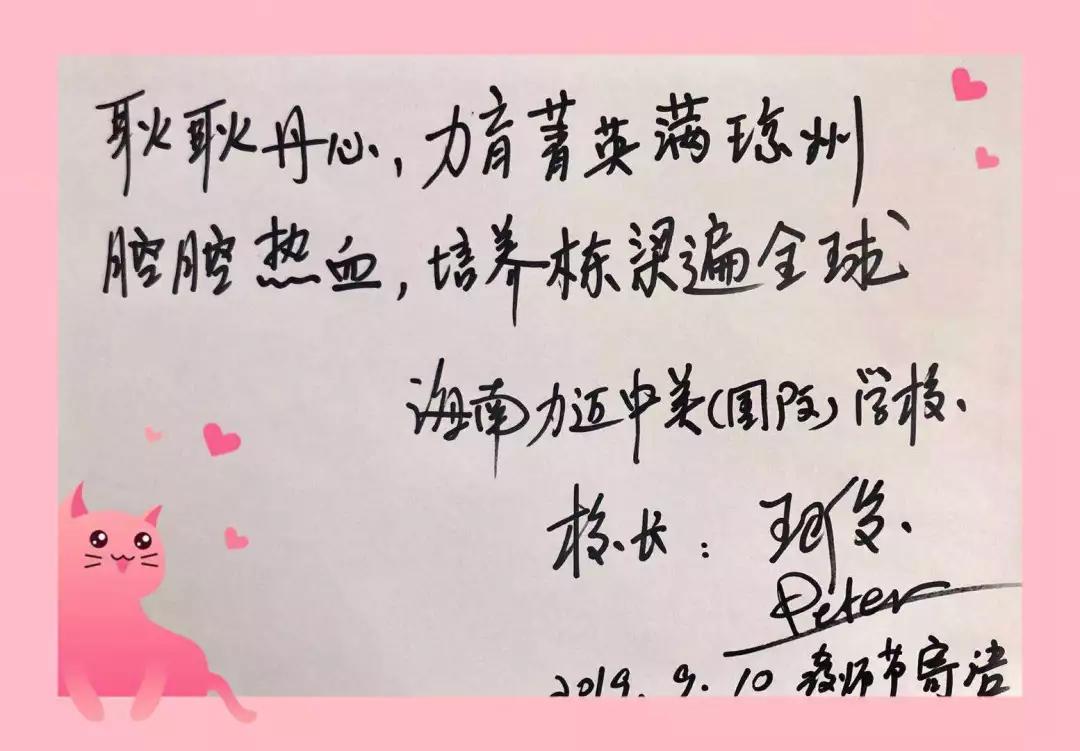 耿耿丹心,力育菁英满琼州
腔腔热血,培养栋梁遍全球
海南力迈中美(国际)学校.
校长:
Peter
2019.9.10 教师节寄语